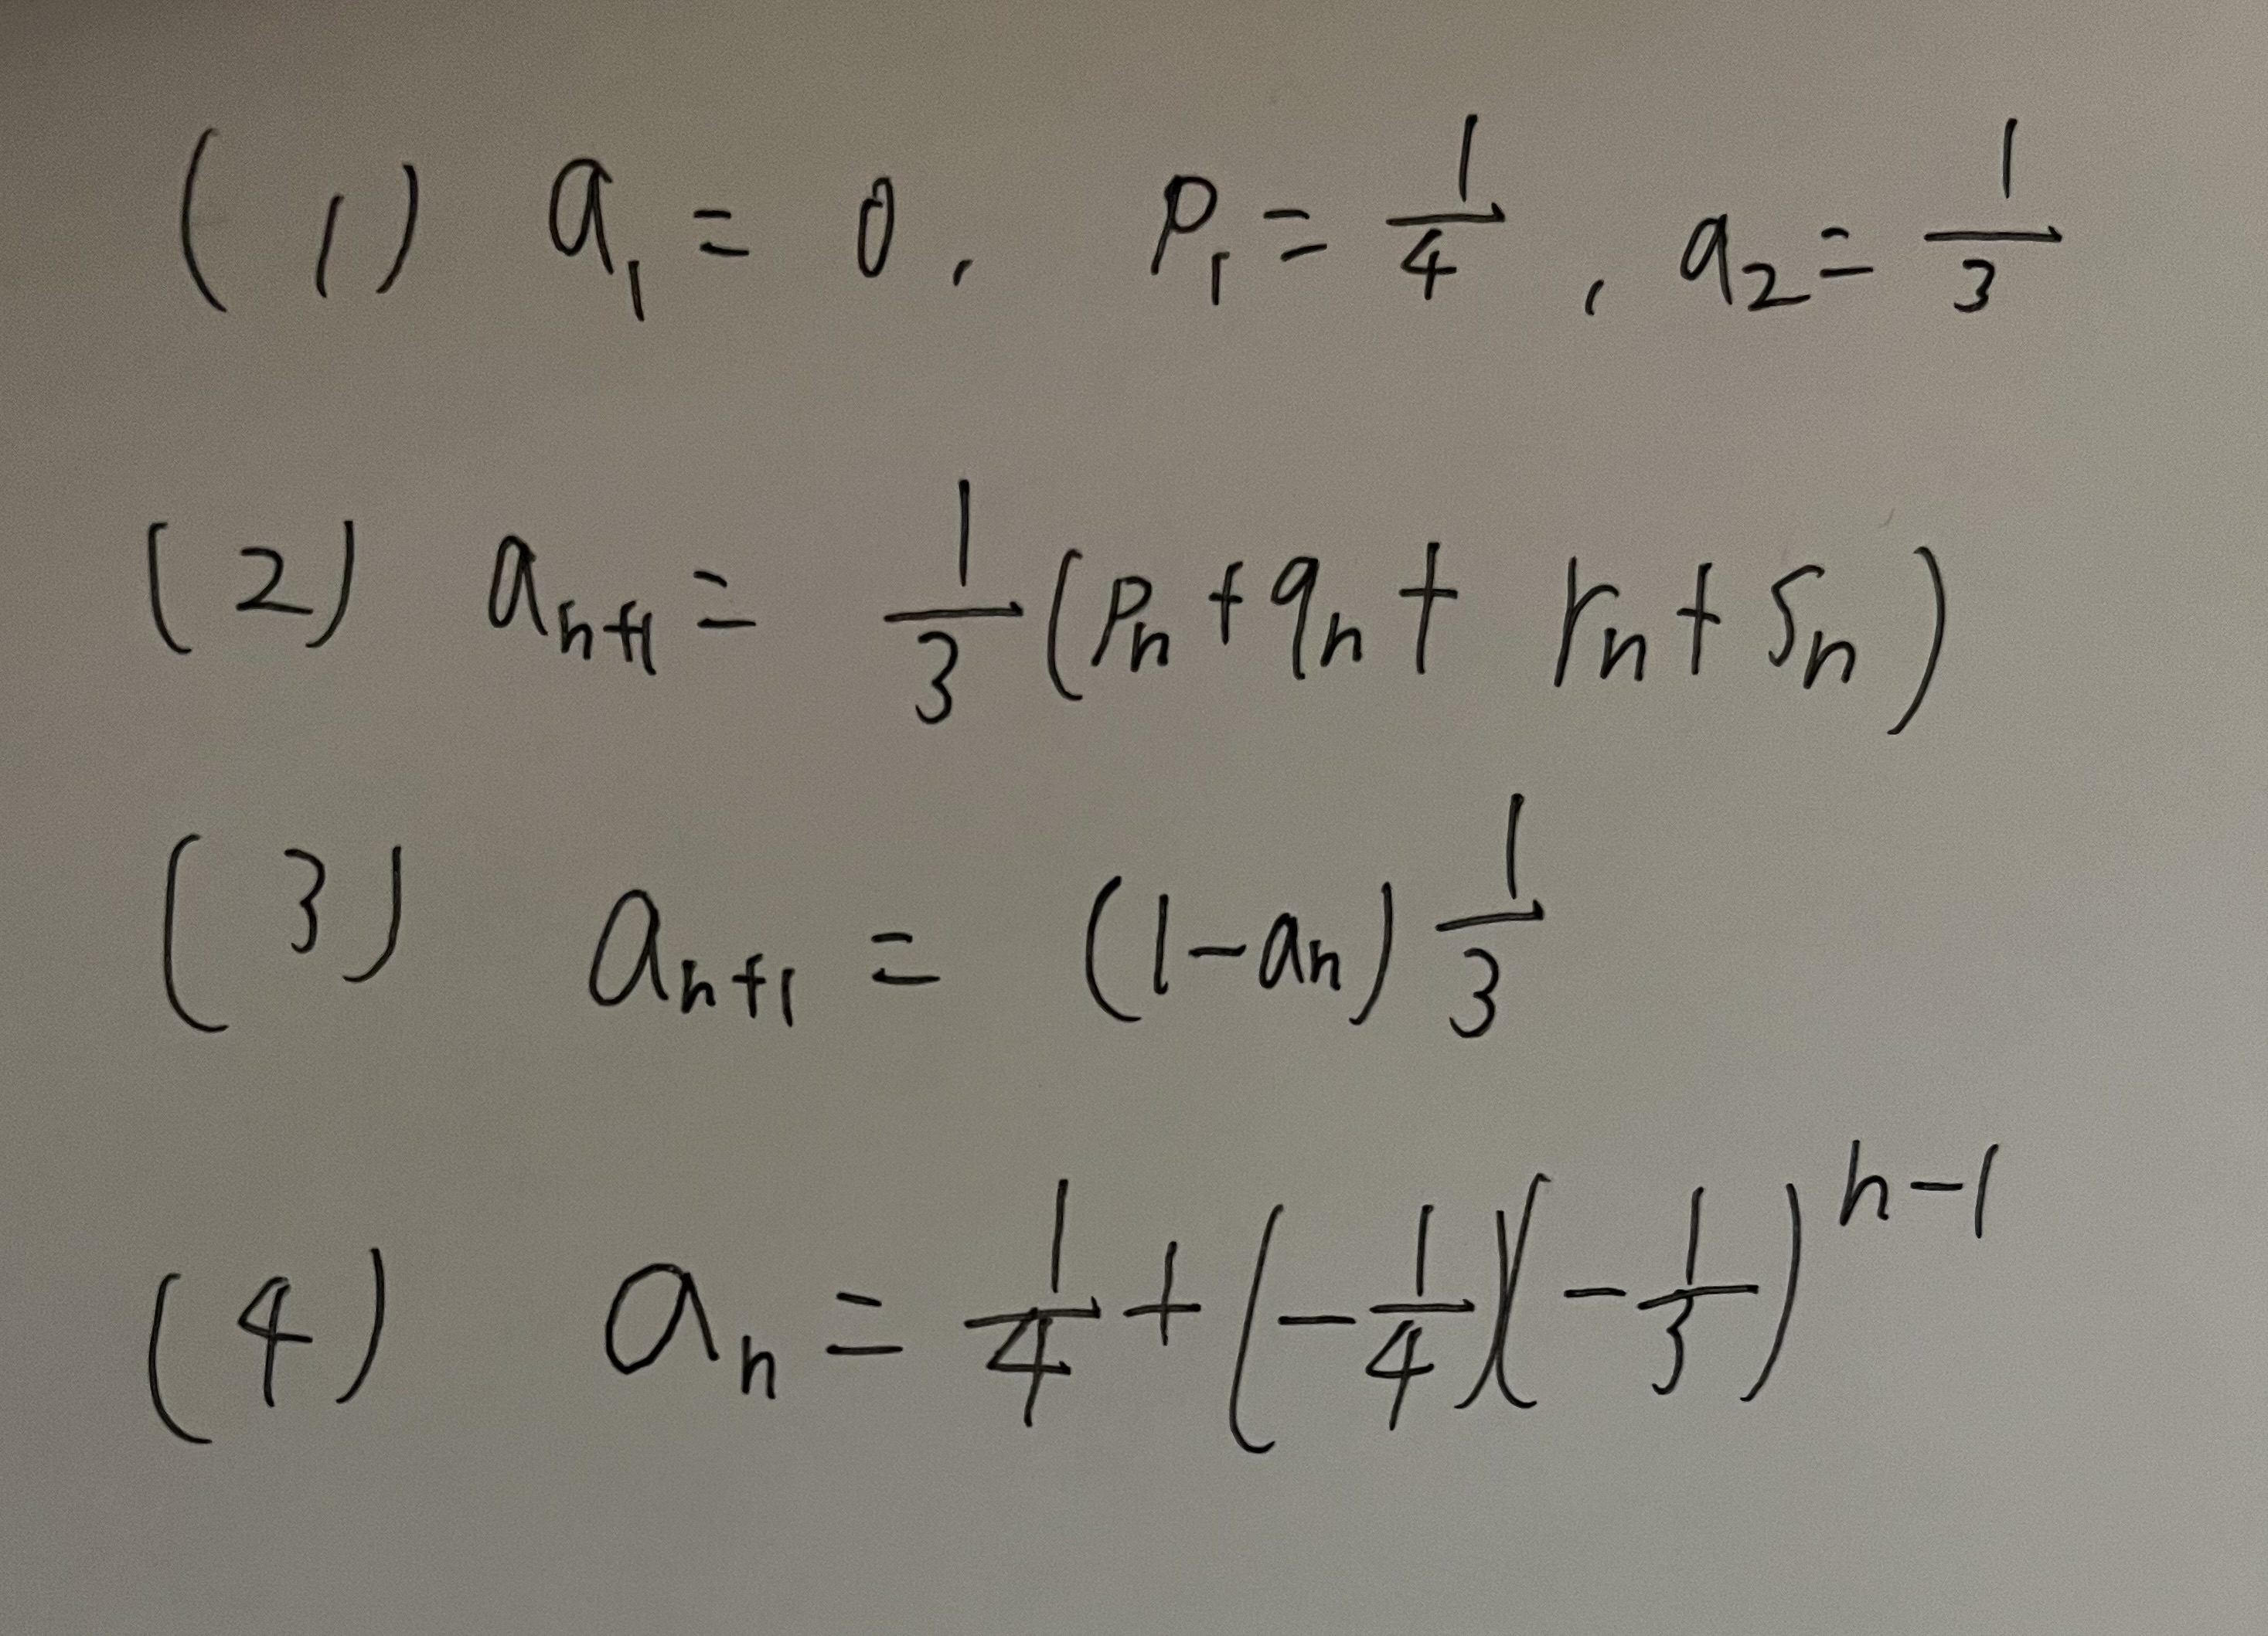 (1) a₁ = 0, p₁ = 1/4, a₂ = 1/3
(2) aₙ₊₁ = 1/3 (pₙ + qₙ + rₙ + sₙ)
(3) aₙ₊₁ = (1-aₙ) 1/3
(4) aₙ = 1/4 + (-1/4)(-1/3)ⁿ⁻¹